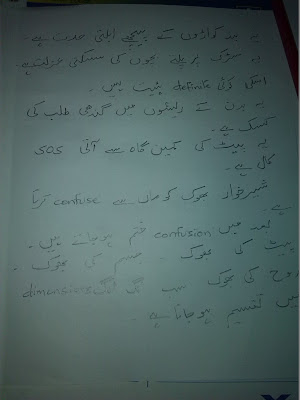 یہ بند کواڑوں کے پیچھے ابلتی حدت ہے۔
یہ سڑک پر پلے بچوں کی سسکتی
اسکی کوئی definite ہیئت نہیں۔
یہ ہرن کے ریشوں میں گندھی طلب کی
کسک ہے۔
یہ پیٹ کی کمین گاہ سے آتی SOS
کال ہے۔
شیرخوار بھوک کو ماں سے confuse کرتا
ہے۔
بعد میں confusion ختم ہو جاتے ہیں۔
پیٹ کی بھوک۔ جسم کی بھوک۔
روح کی بھوک سب الگ الگ dimensions
میں تقسیم ہو جاتا ہے۔